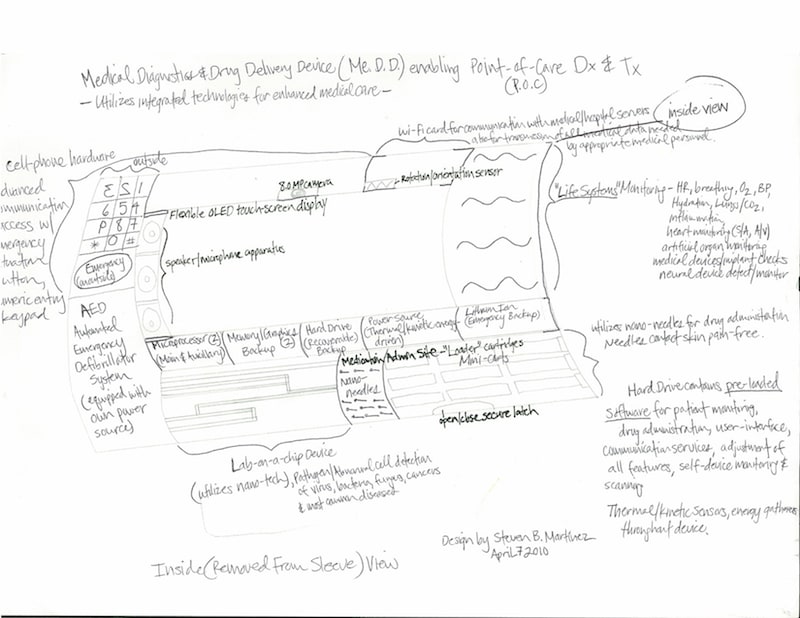 Medical Diagnostics & Drug Delivery Device (Me.D.D.) enabling Point-of-Care Dx & Tx
(P.O.C)
- Utilizes integrated technologies for enhanced medical care -
inside view
wi-fi card for communication with medical/hospital servers
also for transmission of all medical data needed
by appropriate medical personnel.
cell-phone hardware
outside
8.0 MP camera
Rotation/orientation sensor
Flexible OLED touch-screen display
speaker/microphone apparatus
1 2 3
4 5 6
7 8 9
* 0 #
Emergency
(autodial)
button,
keypad
AED
Automated
Emergency
Defibrillator
System
(equipped with
own power
source)
"Life Systems" Monitoring - HR, breathing, O2, BP,
Hydration, Lungs/CO2,
inflammation,
heart monitoring (S/A, A/V)
artificial organ monitoring
medical devices/implant checks
neural device detect/monitor
Microprocessor (2)
(Main & Auxillary)
Memory/Graphics
Backup (2)
Hard Drive
(Recoverable)
Backup
Power source
(Thermal/kinetic energy
driven)
Lithium Ion
(Emergency Backup)
Medication Admin Site - "Loader" cartridges
Mini-Carts
nano-
needles
open/close secure latch
utilizes nano-needles for drug administration
Needles contact skin pain-free.
Hard Drive contains pre-loaded
software for patient monitoring,
drug administration, user-interface,
communication services, adjustment of
all features, self-device monitoring &
scanning
Thermal/kinetic sensors, energy gatherers
throughout device.
Lab-on-a-chip Device
(utilizes nano-tech), Pathogen/Abnormal cell detection
of virus, bacteria, fungus, cancers
& most common diseases
Design by Steven B. Martinez
April 7 2010
Inside (Removed From Sleeve) View